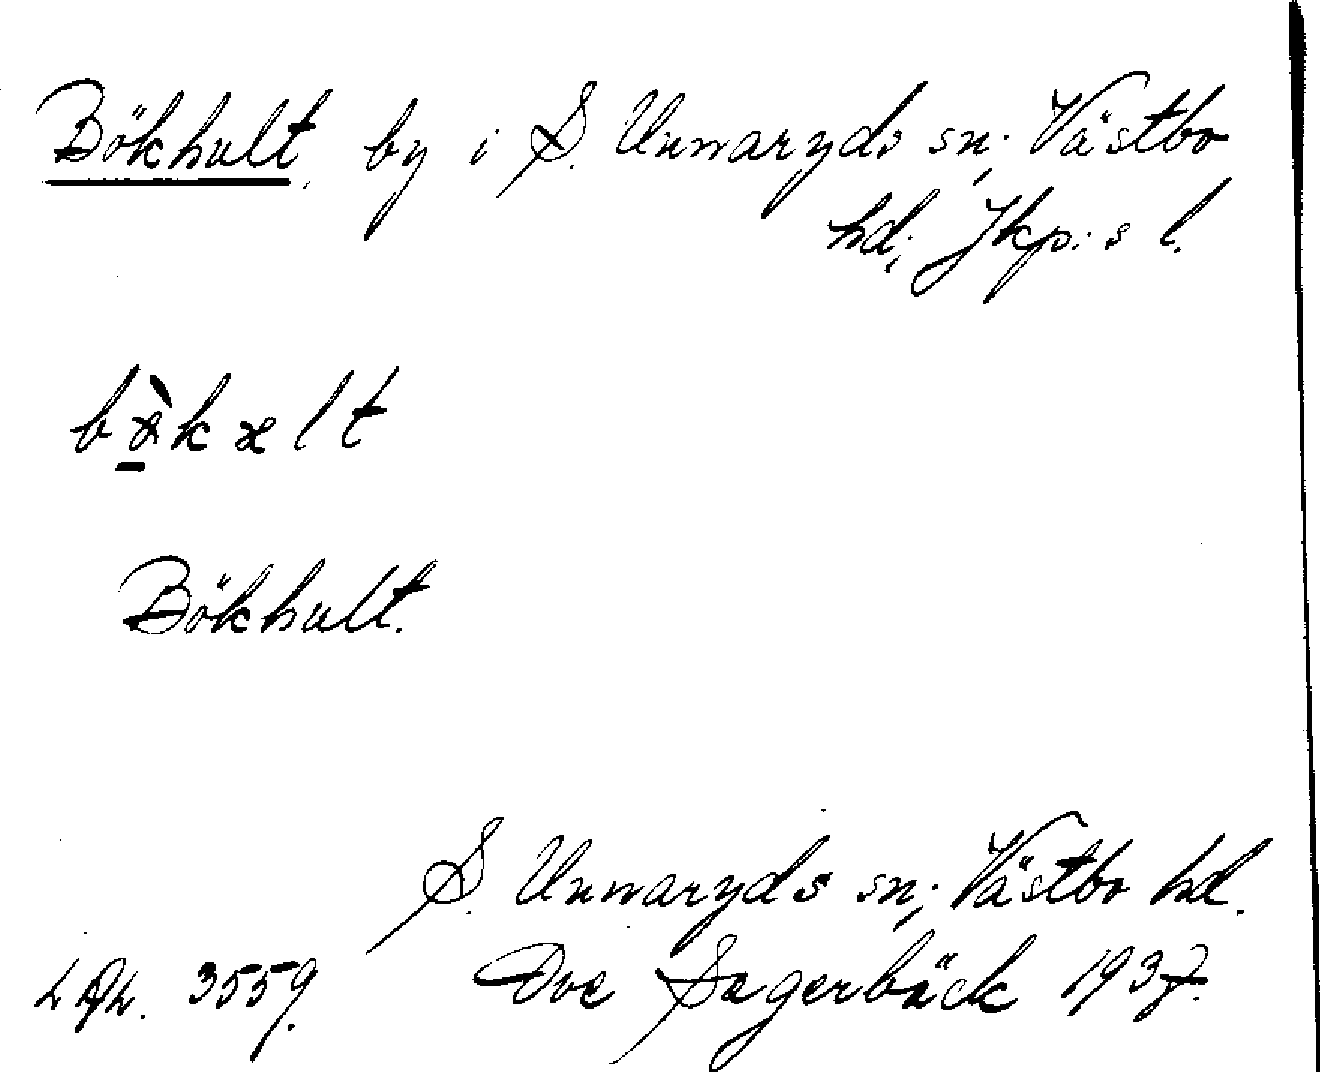 Bökhult, by i S. Unnaryds sn; Västbo
hd; Jkp:s l.
Bökhult.
S. Unnaryds sn; Västbo hd.
3559. Ove Segerbäck 1937.